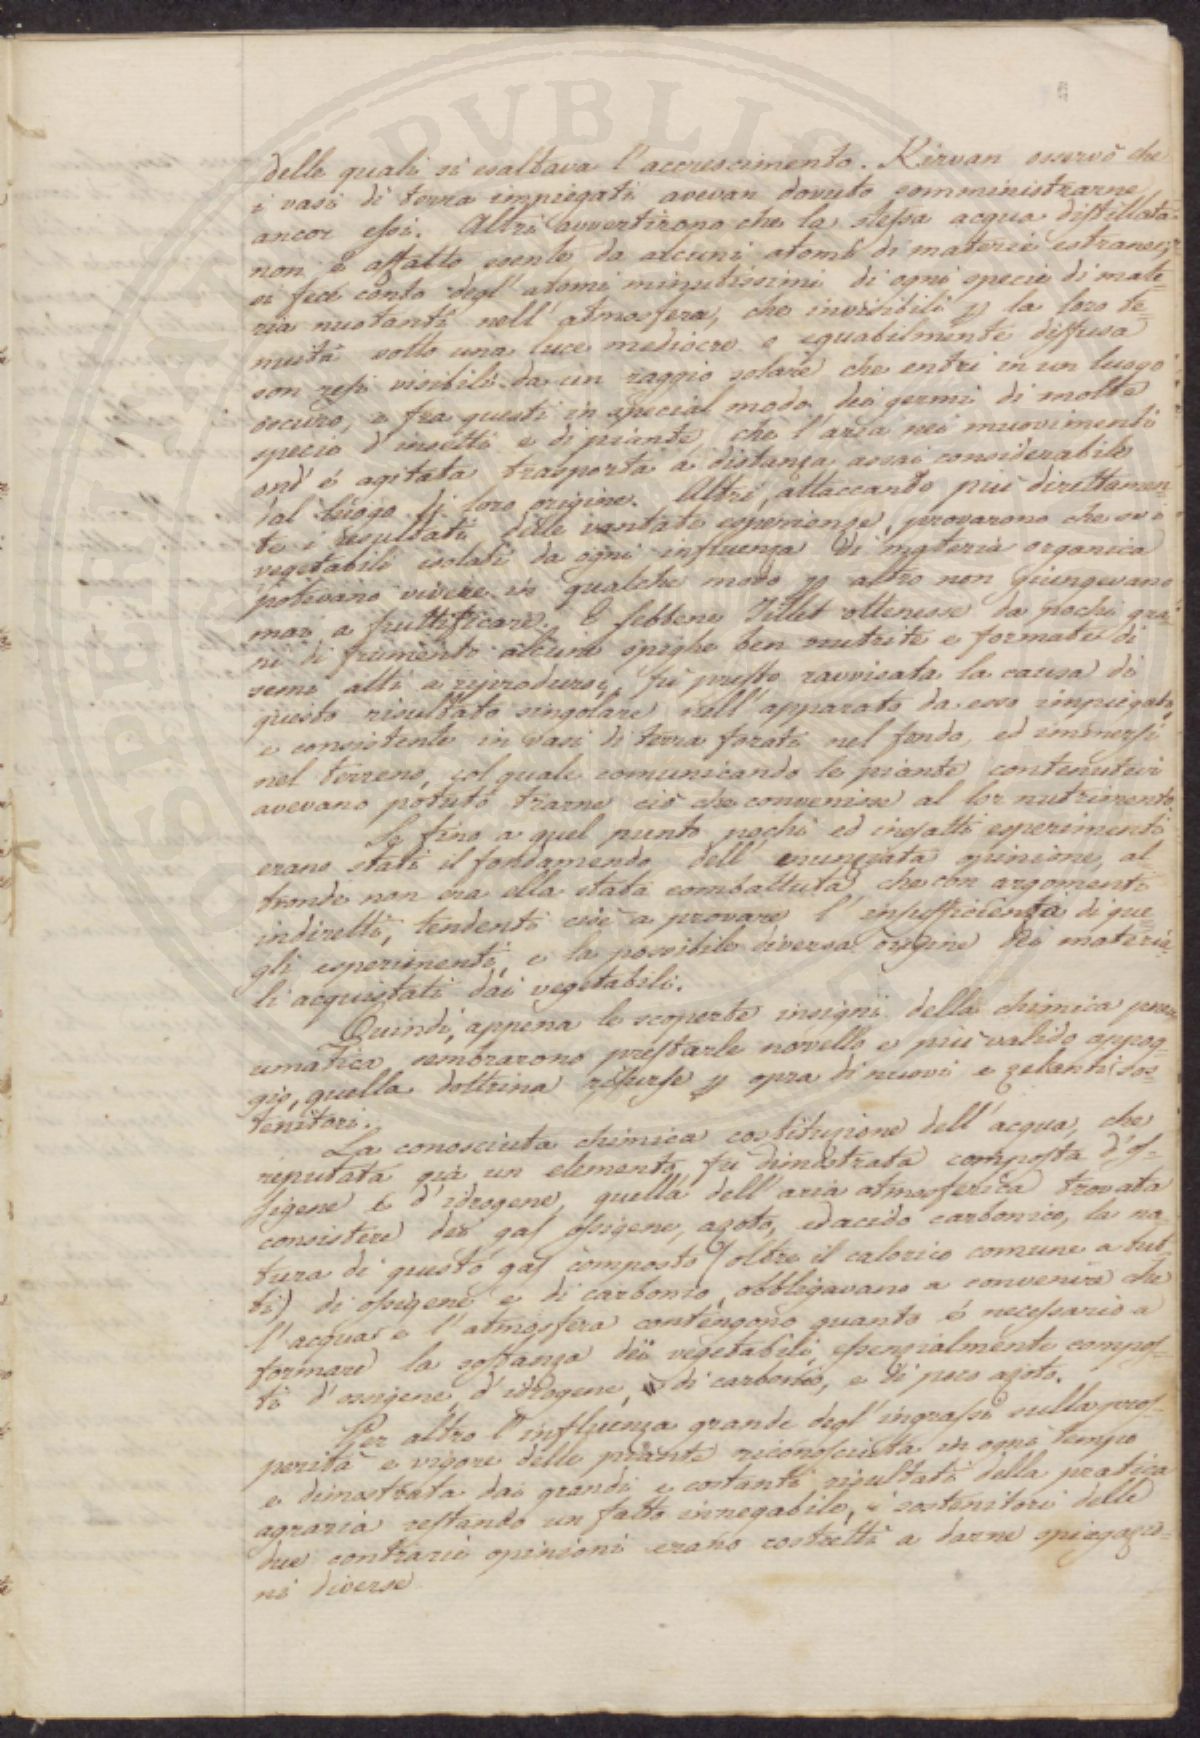 delle quali si esaltava l'accrescimento. Kirvan osservò che
i vasi di terra impiegati avevan dovuto somministrarne
ancor essi. Altri avvertirono che la stessa acqua distillata
non è affatto esente da alcuni atomi di materie estranee;
si fece conto degl'atomi minutissimi di ogni specie di mate=
ria nuotanti nell'atmosfera, che invisibili p la loro te=
nuità sotto una luce mediocre e equabilmente diffusa
son resi visibili da un raggio solare che entri in un luogo
oscuro, e fra questi in special modo dei germi di molte
specie d'insetti e di piante, che l'aria nei muovimenti
ond'è agitata trasporta a distanza assai considerabile
dal luogo di loro origine. Altri, attaccando più direttamen=
te i resultati delle vantate esperienze, provarono che se i
vegetabili isolati da ogni influenza di materia organica
potevano vivere in qualche modo p altro non giungevano
mai a fruttificare. E sebbene Tillet ottenesse da pochi gra=
ni di frumento alcune spighe ben nutrite e formate di
semi atti a riprodursi, fù presto ravvisata la causa di
questo risultato singolare nell'apparato da esso impiegato,
e consistente in vasi di terra forati nel fondo, ed immersi
nel terreno, col quale comunicando le piante contenutevi
avevano potuto trarne ciò che convenisse al lor nutrimento.
Se fino a quel punto pochi ed inesatti esperimenti
erano stati il fondamento dell'enunciata opinione, al=
tronde non era ella stata combattuta che con argomenti
indiretti, tendenti cioè a provare l'insufficienza di que=
gli esperimenti, e la possibile diversa origine dei materia=
li acquistati dai vegetabili.
Quindi, appena le scoperte insigni della chimica pneu=
umatica sembrarono prestarle novello e più valido appog=
gio, quella dottrina risurse p opra di nuovi e zelanti sos=
tenitori.
La conosciuta chimica costituzione dell'acqua, che
reputata già un elemento fù dimostrata composta d'os=
sigene e d'idrogene, quella dell'aria atmosferica trovata
consistere dei gas ossigene, azoto, ed acido carbonico, la na=
tura di questo gas composto (oltre il calorico comune a tut=
ti) di ossigene e di carbonio, obbligavano a convenire che
l'acqua e l'atmosfera contengono quanto è necessario a
formare la sostanza dei vegetabili, essenzialmente compos=
ti d'ossigene, d'idrogene, di carbonio, e di poco azoto.
Per altro l'influenza grande degl'ingrassi sulla pros=
perità e vigore delle piante riconosciuta in ogni tempo
e dimostrata dai grandi e costanti risultati della pratica
agraria restando un fatto innegabile, i sostenitori delle
due contrarie opinioni erano costretti a darne spiegazio=
ni diverse